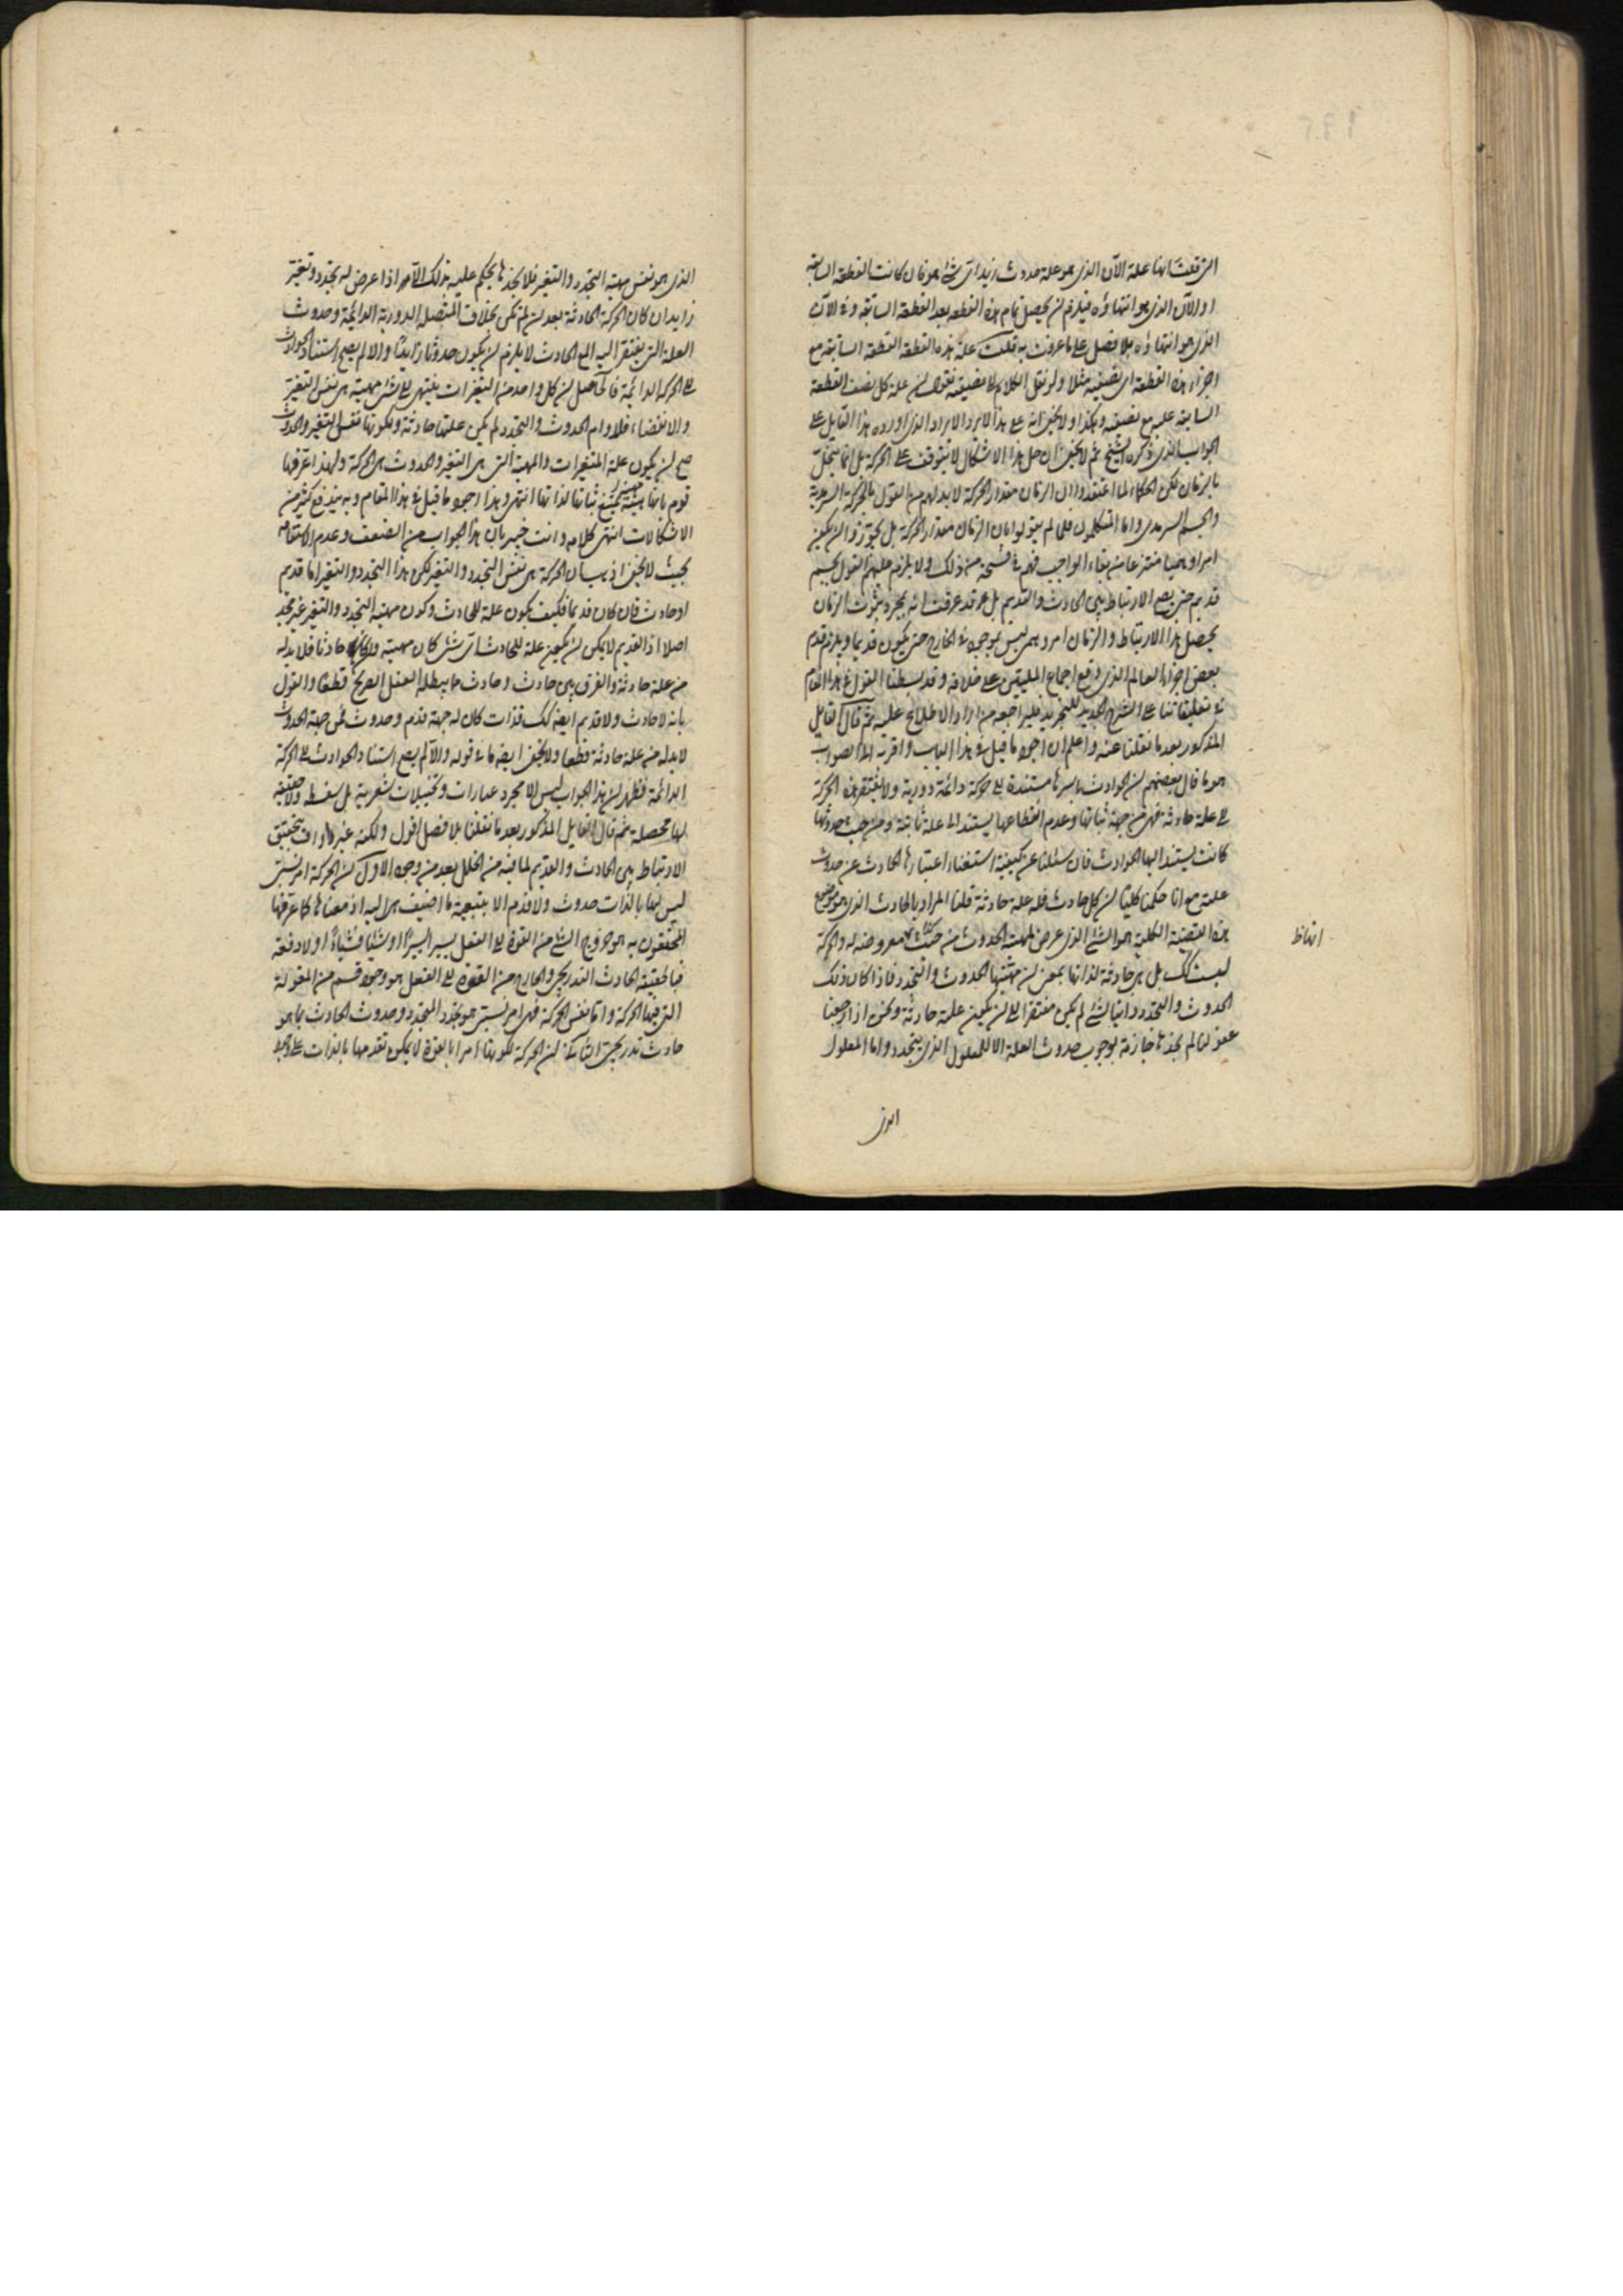 التى قلت انها علة الآن الذى هو علة حدوث زيد اى شئ هو فان كانت القطعة السابقة
او الآن الذى هو انتهاؤه فيلزم ان يحصل تمام هذه القطعة بعد القطعة السابقة وفى الآن
الذى هو انتهاؤه بلا فصل على ما عرفت به قلت علة هذه القطعة القطعة السابقة مع
اجزاء هذه القطعة اى نصفيه مثلا ولو نقل الكلام الى نصفيه نقول ان علة كل نصف القطعة
السابقة عليه مع نصفيه وهكذا ولا يخفى انه على هذا لا يرد الايراد الذى اورده هذا القايل على
الجواب الذى ذكره الشيخ ثم لا يخفى ان حل هذا الاشكال لا يتوقف على الحركة بل انما ينحل
بالزمان لكن الحكماء لما اعتقدوا ان الزمان مقدار الحركة لابد لهم من القول بالحركة السرمدية
والجسم السرمدى واما المتكلمون فلما لم يقولوا بان الزمان مقدار الحركة بل يجوزوا ان يكون
امرا وهميا منتزعا من بقاء الواجب فهم فى فسحة من ذلك ولا يلزم عليهم القول بجسم
قديم حتى يصح الارتباط بين الحادث والقديم بل قد عرفت انه بمجرد ثبوت الزمان
يحصل هذا الارتباط والزمان امر وهمى ليس بموجود فى الخارج حتى يكون قديما ويلزم قدم
بعض اجزاء العالم الذى وقع اجماع المليين على خلافه وقد بسطنا القول فى هذا المقام
فى تعليقاتنا على الشرح الجديد للتجريد فليراجعه من اراد الاطلاع عليه ثم قال القايل
المذكور بعد ما نقلنا عنه واعلم ان اجود ما قيل فى هذا الباب واقربه الى الصواب
هو ما قال بعضهم ان الحوادث باسرها مستندة الى حركة دائمة دورية ولا يفتقر هذه الحركة
الى علة حادثة فهى من جهة ثباتها وعدم انقطاعها يستند الى علة ثابتة ومن حيث حدوثها
كانت يستند اليها الحوادث فان سئلنا عن كيفية استغناء اعتبارها الحادث عن حدوث
علته مع انا حكمنا كليا ان كل حادث فله علة حادثة قلنا المراد بالحادث الذى هو موضوع
هذه القضية الكلية هو الشئ الذى عرض لمهيته الحدوث من حيث هو معروضه له والحركة
ليست كك بل هى حادثة لذاتها بمعنى ان مهيتها الحدوث والتجدد فاذا كان ذلك
الحدوث والتجدد ذاتيا لشئ لم يكن مفتقرا الى ان يكون علته حادثة ونحن اذا رجعنا
عقولنا لم نجدها جازمة بوجوب حدوث العلة الا للمعلول الذى يتجدد واما المعلول
الذى
الذى هو نفس مهية التجدد والتغير فلا نجدها يحكم عليه بذلك الا اذا عرض له تجدد وتغير
زايدان كان الحركة الحادثة بعد ان لم تكن بخلاف المتصلة الدورية الدائمة وحدوث
العلة التى يفتقر اليه المع الحادث لا يلزم ان يكون حدوثا زايدا والا لم يصح استناد الحوادث
الى الحركة الدائمة فالحاصل ان كل واحد من التغيرات ينتهى الى شئ مهيته هى نفس التغير
والانقضاء فلدوام الحدوث والتجدد لم يكن علتها حادثة ولكونها نفس التغير والحدوث
صح ان يكون علة المتغيرات والمهية التى هى التغير والحدوث هى الحركة ولهذا عرفها
قوم بانها هيئة يمتنع ثباتها لذاتها انتهى وهذا اجود ما قيل فى هذا المقام وبه يندفع كثير من
الاشكالات انتهى كلامه وانت خبير بان هذا الجواب من الضعف وعدم الاستقامة
بحيث لا يخفى اذ هب ان الحركة هى نفس التجدد والتغير لكن هذا التجدد والتغير اما قديم
او حادث فان كان قديما فكيف يكون علة للحادث وكون مهيته التجدد والتغير غير مجد
اصلا اذ القديم لا يمكن ان يكون علة للحادث اى شئ كان مهيته وان كان حادثا فلا بد له
من علة حادثة والفرق بين حادث وحادث مما يبطله العقل الصريح قطعا والقول
بانه لا حادث ولا قديم ايضا كك فذات كان له جهة قدم وحدوث فمن جهة الحدوث
لا بد له من علة حادثة قطعا ولا يخفى ايضا ما فى قوله والا لم يصح استناد الحوادث الى الحركة
الدائمة فظهر ان هذا الجواب ليس الا مجرد عبارات وتخييلات شعرية بل سفسطة ولا حقيقة
لها محصلة ثم قال القايل المذكور بعد ما نقلنا بلا فصل اقول ولكنه غير واف بتحقيق
الارتباط بين الحادث والقديم لما فيه من الخلل بعد من وجوه الاول ان الحركة امر نسبى
ليس لها بالذات حدوث ولا قدم الا بتبعية ما اضيف هى اليه اذ معناها كما عرفها
المحققون به هو خروج الشئ من القوة الى الفعل يسيرا يسيرا او شيئا فشيئا او لا دفعة
فبالحقيقة الحادث التدريجى والخارج من القوة الى الفعل هو وجود قسم من المقولة
التى فيها الحركة واما نفس الحركة فهى امر نسبى هو تجدد المتجدد وحدوث الحادث بما هو
حادث تدريجى الثانى ان الحركة لكونها امرا بالقوة لا يمكن تقدمها بالذات على وجود